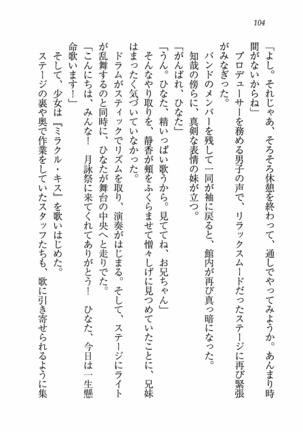 104
「よし。それじゃあ、そろそろ休憩を終わって、通しでやってみようか。あんまり時
間がないからね」
プロデューサーを務める男子の声で、リラックスムードだったステージに再び緊張
がみなぎった。
バンドのメンバーを残して一同が袖に戻ると、館内が再び真っ暗になった。
知哉の傍らに、真剣な表情の妹が立つ。
「がんばれ、ひなた」
「うん。ひなた、精いっぱい歌うから。見ててね、お兄ちゃん」
そんなやり取りを、静香が頬をふくらませて憎々しげに見つめていたことに、兄妹
はまったく気づいていなかった。
ドラムがスティックでリズムを取り、演奏がはじまる。そして、ステージにライト
が乱舞するのと同時に、ひなたが舞台の中央へと走りでた。
「こんにちは、みんな！　月詠祭に来てくれてありがとう！　ひなた、今日は一生懸
命歌います！」
そして、少女は『ミラクル・キス』を歌いはじめた。
ステージの裏や奥で作業をしていたスタッフたちも、歌に引き寄せられるように集